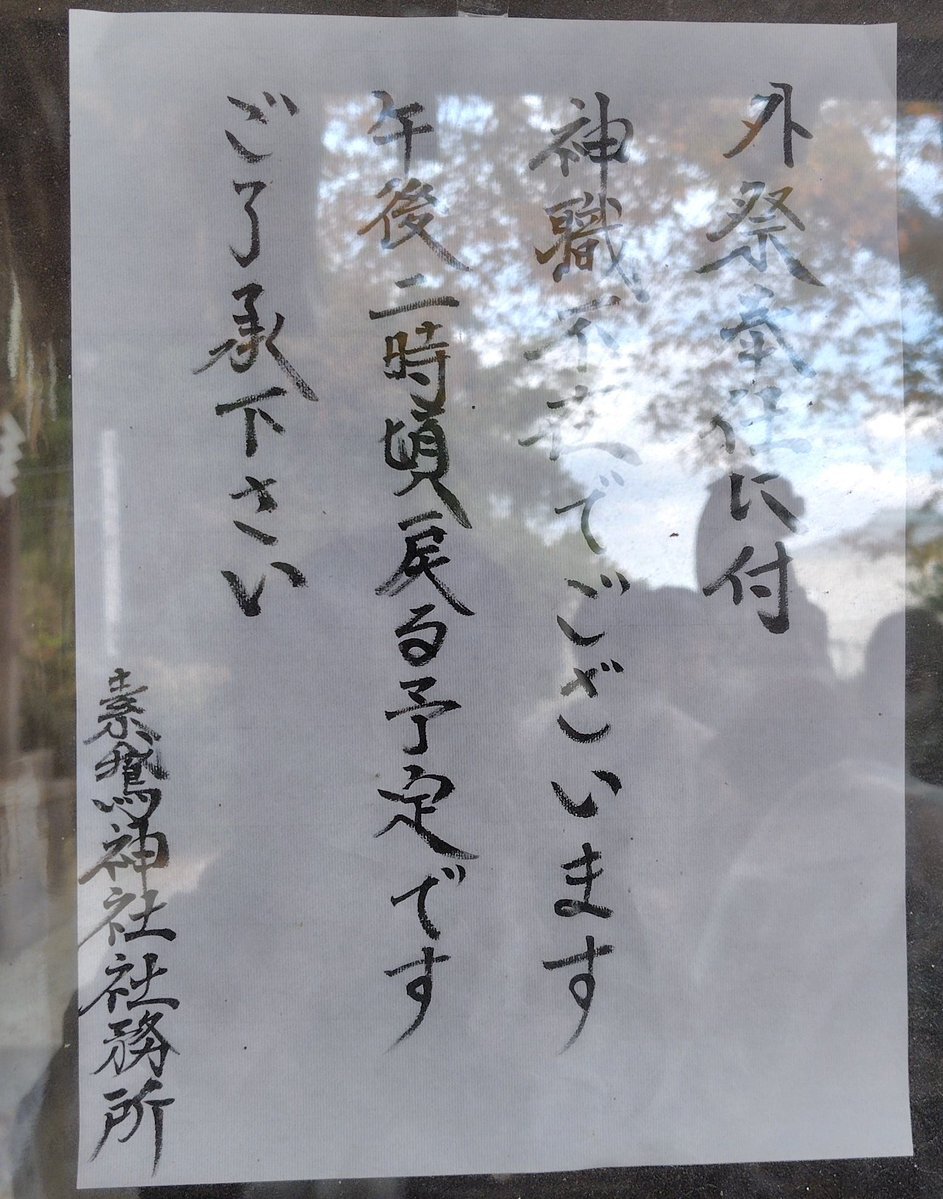 外祭奉仕に付
神職不在でございます
午後二時頃戻る予定です
ご了承下さい
素鵞神社社務所